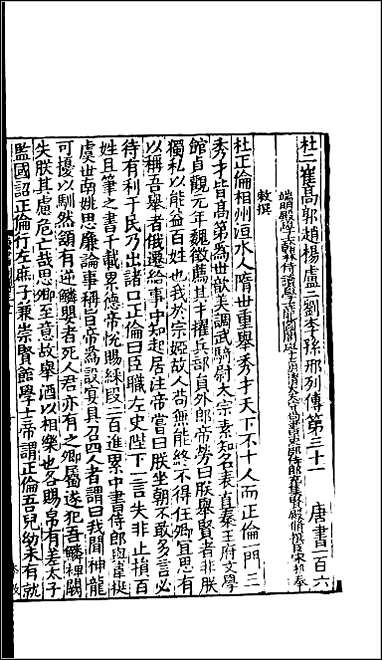 杜二崔高郭趙楊盧二劉李孫邢列傳第三十一　唐書一百六
端明殿學士兼翰林侍讀學士龍圖閣學士朝請大夫守尚書吏部侍郎充集賢殿脩撰臣宋祁奉
敕撰
杜正倫相州洹水人隋世重舉秀才天下不十人而正倫一門三
秀才皆高第為世歆美調武騎尉太宗素知名表直秦王府文學
館貞觀元年魏徵薦其才擢兵部員外郎帝勞曰朕舉賢者非朕
獨私以能益百姓也我於宗婭故人苟無能終不得任卿宜思有
以稱吾舉者俄遷給事中知起居注帝嘗曰朕坐朝不敢多言必
待有利于民乃出諸口正倫曰臣職左史陛下一言失非止損百
姓且筆之書千載累德帝悅賜綵段二百進累中書侍郎與韋挺
虞世南姚思廉論事稱旨帝為設宴具召四人者謂曰我聞神龍
可擾以馴然頷有逆鱗嬰者死人君亦有之卿屬遂犯吾鱗裨闕
失朕其慮危亡哉思卿至意故舉酒以相樂也各賜帛有差太子
監國詔正倫行左庶子兼崇賢館學士帝謂正倫吾兒幼未有就